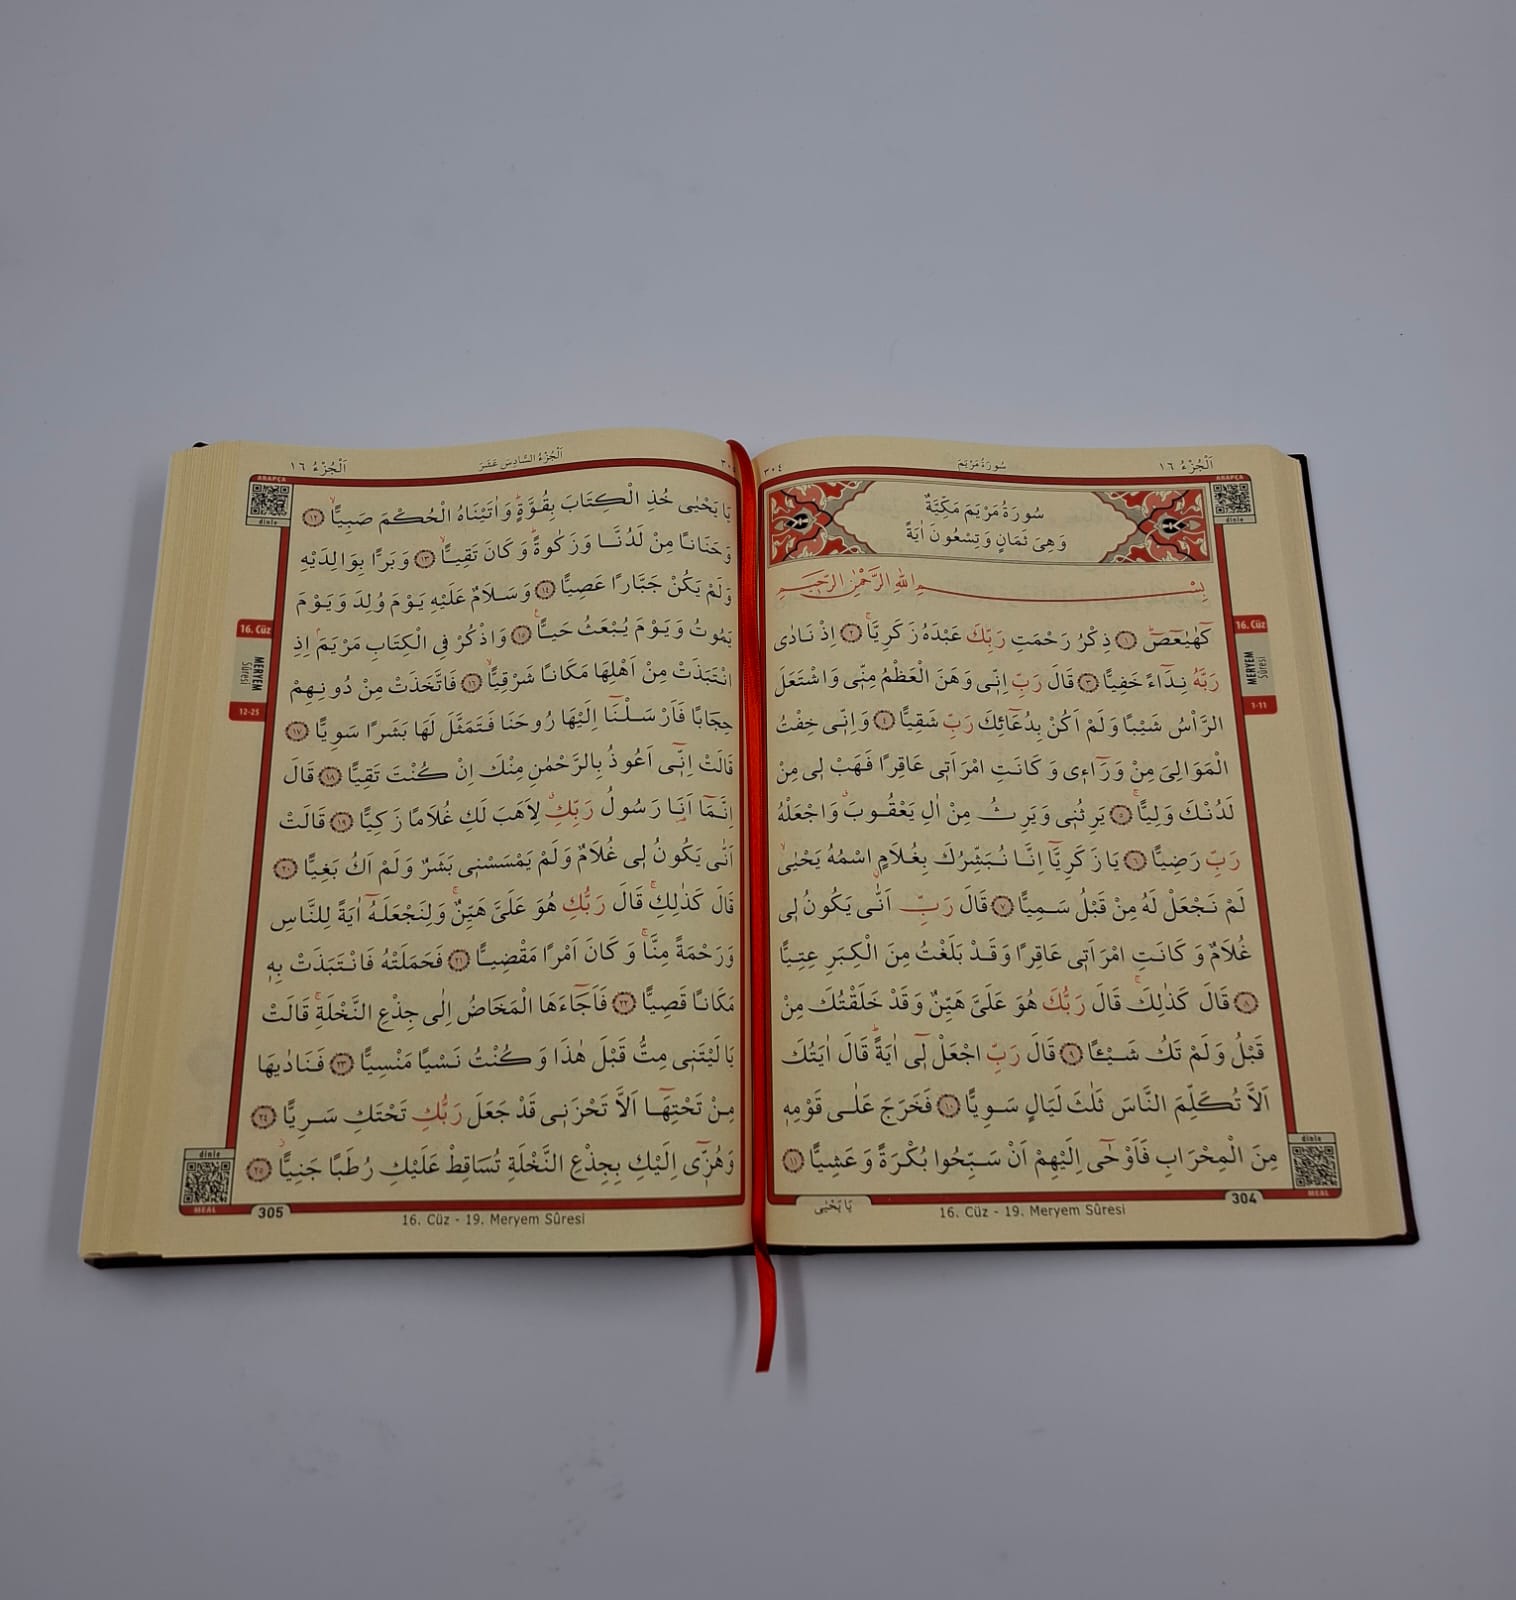 اَلْجُزْءُ ١٦
سُورَةُ مَرْيَمَ
٣٠٤
ARAPÇA
dinle
سُورَةُ مَرْيَمَ مَكِّيَّةٌ
وَهِىَ ثَمَانٍ وَتِسْعُونَ اٰيَةً
بِسْمِ اللهِ الرَّحْمٰنِ الرَّحٖيمِ
كٓهٰيٰعٓصٓ ﴿١﴾ ذِكْرُ رَحْمَتِ رَبِّكَ عَبْدَهُ زَكَرِيَّاۚ ﴿٢﴾ اِذْ نَادٰى
رَبَّهُ نِدَٓاءً خَفِيًّا ﴿٣﴾ قَالَ رَبِّ اِنّٖى وَهَنَ الْعَظْمُ مِنّٖى وَاشْتَعَلَ
الرَّاْسُ شَيْبًا وَلَمْ اَكُنْ بِدُعَٓائِكَ رَبِّ شَقِيًّا ﴿٤﴾ وَاِنّٖى خِفْتُ
الْمَوَالِىَ مِنْ وَرَٓاءٖى وَكَانَتِ امْرَاَتٖى عَاقِرًا فَهَبْ لٖى مِنْ
لَدُنْكَ وَلِيًّاۙ ﴿٥﴾ يَرِثُنٖى وَيَرِثُ مِنْ اٰلِ يَعْقُوبَ وَاجْعَلْهُ
رَبِّ رَضِيًّا ﴿٦﴾ يَا زَكَرِيَّٓا اِنَّا نُبَشِّرُكَ بِغُلَامٍ اسْمُهُ يَحْيٰىۙ
لَمْ نَجْعَلْ لَهُ مِنْ قَبْلُ سَمِيًّا ﴿٧﴾ قَالَ رَبِّ اَنّٰى يَكُونُ لٖى
غُلَامٌ وَكَانَتِ امْرَاَتٖى عَاقِرًا وَقَدْ بَلَغْتُ مِنَ الْكِبَرِ عِتِيًّا
﴿٨﴾ قَالَ كَذٰلِكَۚ قَالَ رَبُّكَ هُوَ عَلَىَّ هَيِّنٌ وَقَدْ خَلَقْتُكَ مِنْ
قَبْلُ وَلَمْ تَكُ شَيْـًٔا ﴿٩﴾ قَالَ رَبِّ اجْعَلْ لٖٓى اٰيَةًۜ قَالَ اٰيَتُكَ
اَلَّا تُكَلِّمَ النَّاسَ ثَلٰثَ لَيَالٍ سَوِيًّا ﴿١٠﴾ فَخَرَجَ عَلٰى قَوْمِهٖ
مِنَ الْمِحْرَابِ فَاَوْحٰٓى اِلَيْهِمْ اَنْ سَبِّحُوا بُكْرَةً وَعَشِيًّا ﴿١١﴾
16. Cüz
MERYEM
Sûresi
1-11
dinle
MEAL
304
16. Cüz - 19. Meryem Sûresi
يَا يَحْيٰى
اَلْجُزْءُ السَّادِسَ عَشَرَ
اَلْجُزْءُ ١٦
ARAPÇA
dinle
يَا يَحْيٰى خُذِ الْكِتَابَ بِقُوَّةٍۜ وَاٰتَيْنَاهُ الْحُكْمَ صَبِيًّاۙ ﴿١٢﴾
وَحَنَانًا مِنْ لَدُنَّا وَزَكٰوةًۜ وَكَانَ تَقِيًّاۙ ﴿١٣﴾ وَبَرًّا بِوَالِدَيْهِ
وَلَمْ يَكُنْ جَبَّارًا عَصِيًّا ﴿١٤﴾ وَسَلَامٌ عَلَيْهِ يَوْمَ وُلِدَ وَيَوْمَ
يَمُوتُ وَيَوْمَ يُبْعَثُ حَيًّاۚ ﴿١٥﴾ وَاذْكُرْ فِى الْكِتَابِ مَرْيَمَۢ اِذِ
انْتَبَذَتْ مِنْ اَهْلِهَا مَكَانًا شَرْقِيًّاۙ ﴿١٦﴾ فَاتَّخَذَتْ مِنْ دُونِهِمْ
حِجَابًا فَاَرْسَلْنَٓا اِلَيْهَا رُوحَنَا فَتَمَثَّلَ لَهَا بَشَرًا سَوِيًّا ﴿١٧﴾
قَالَتْ اِنّٖٓى اَعُوذُ بِالرَّحْمٰنِ مِنْكَ اِنْ كُنْتَ تَقِيًّا ﴿١٨﴾ قَالَ
اِنَّمَٓا اَنَا۬ رَسُولُ رَبِّكِۗ لِاَهَبَ لَكِ غُلَامًا زَكِيًّا ﴿١٩﴾ قَالَتْ
اَنّٰى يَكُونُ لٖى غُلَامٌ وَلَمْ يَمْسَسْنٖى بَشَرٌ وَلَمْ اَكُ بَغِيًّا ﴿٢٠﴾
قَالَ كَذٰلِكِۚ قَالَ رَبُّكِ هُوَ عَلَىَّ هَيِّنٌۚ وَلِنَجْعَلَهُٓ اٰيَةً لِلنَّاسِ
وَرَحْمَةً مِنَّاۚ وَكَانَ اَمْرًا مَقْضِيًّا ﴿٢١﴾ فَحَمَلَتْهُ فَانْتَبَذَتْ بِهٖ
مَكَانًا قَصِيًّا ﴿٢٢﴾ فَاَجَٓاءَهَا الْمَخَاضُ اِلٰى جِذْعِ النَّخْلَةِۚ قَالَتْ
يَا لَيْتَنٖى مِتُّ قَبْلَ هٰذَا وَكُنْتُ نَسْيًا مَنْسِيًّا ﴿٢٣﴾ فَنَادٰيهَا
مِنْ تَحْتِهَٓا اَلَّا تَحْزَنٖى قَدْ جَعَلَ رَبُّكِ تَحْتَكِ سَرِيًّا ﴿٢٤﴾
وَهُزّٖٓى اِلَيْكِ بِجِذْعِ النَّخْلَةِ تُسَاقِطْ عَلَيْكِ رُطَبًا جَنِيًّاۙ ﴿٢٥﴾
16. Cüz
MERYEM
Sûresi
12-25
dinle
MEAL
305
16. Cüz - 19. Meryem Sûresi